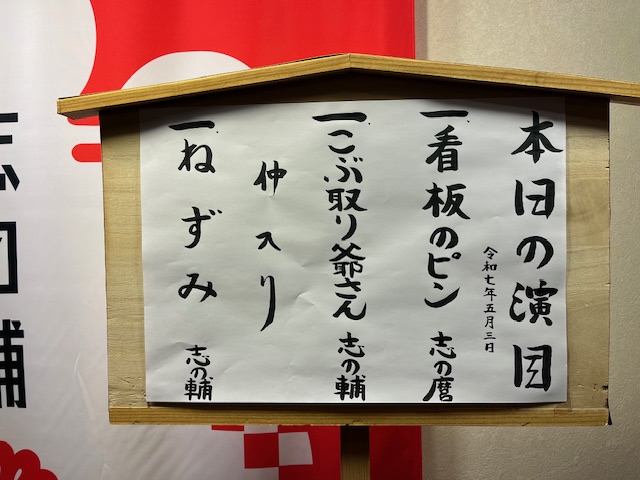 本日の演目
令和七年五月三日
一 看板のピン 志の麿
一 こぶ取り爺さん 志の輔
仲入り
一 ねずみ 志の輔
志の輔